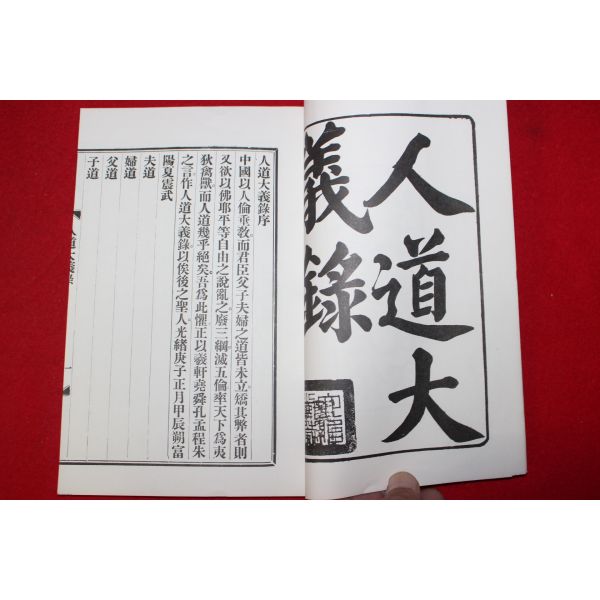 人道大
義錄
人道大義錄序
中國以人倫垂教而君臣父子夫婦之道皆未立矯其弊者則
又欲以佛耶平等自由之說亂之廢三綱滅五倫率天下為夷
狄禽獸而人道幾乎絕矣吾為此懼正以羲軒堯舜孔孟程朱
之言作人道大義錄以俟後之聖人光緒庚子正月甲辰朔富
陽夏震武
夫道
婦道
父道
子道
人道大義錄